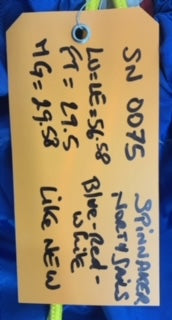 SPINNAKER
SN 0075 NORTH SAILS
LU=LE=56.58 Blue-Red-
White
FT = 29.5
MG = 29.58 LIKE NEW